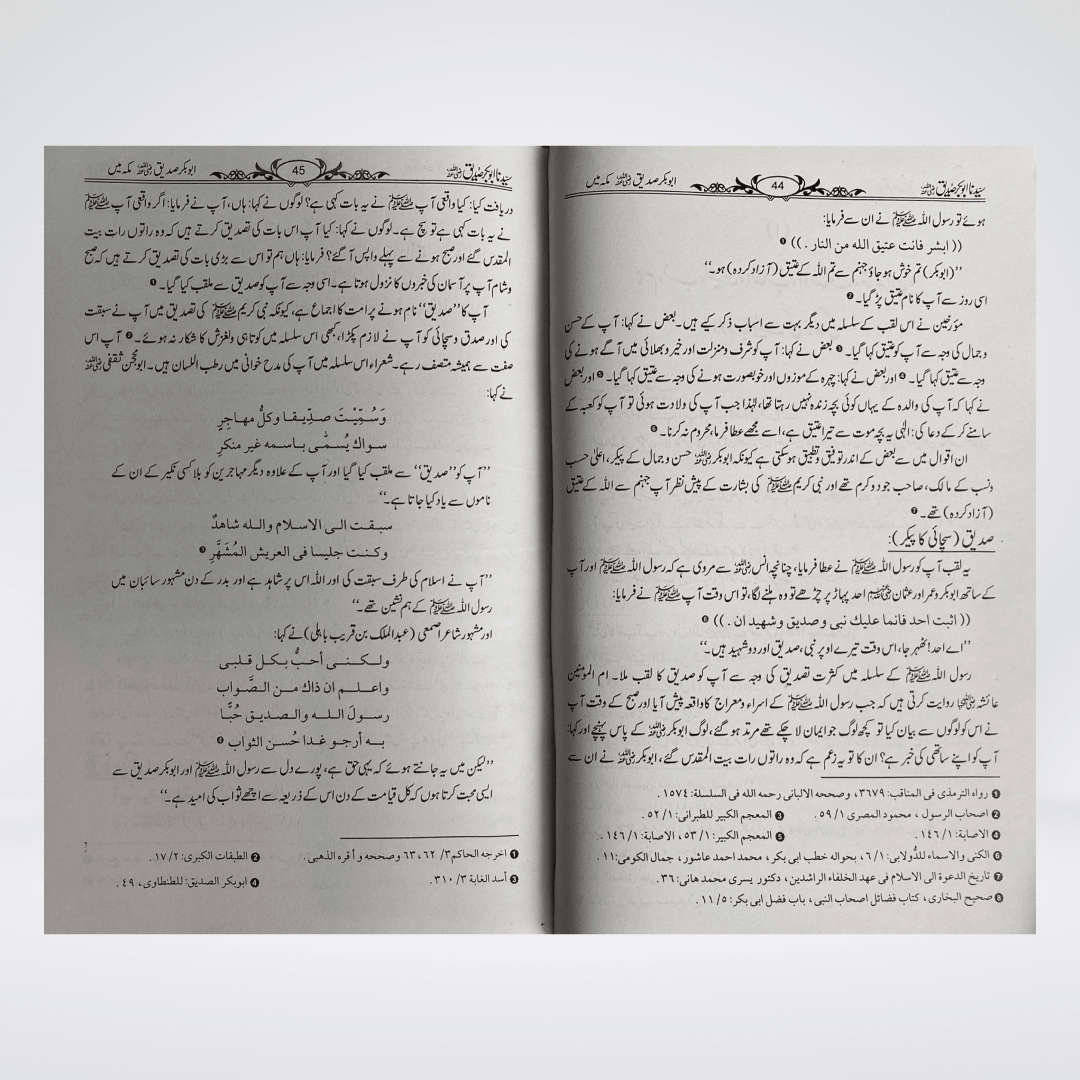 سیدنا ابوبکر صدیق رضی اللہ عنہ 44 ابوبکر صدیق رضی اللہ عنہ مکہ میں
ہوئے تو رسول اللہ ﷺ نے ان سے فرمایا:
(( ابشر فانت عتیق الله من النار . )) ❶
’’(ابوبکر) تم خوش ہو جاؤ جہنم سے تم اللہ کے عتیق (آزاد کردہ) ہو۔‘‘
اسی روز سے آپ کا نام عتیق پڑ گیا۔ ❷
مؤرخین نے اس لقب کے سلسلہ میں دیگر بہت سے اسباب ذکر کیے ہیں۔ بعض نے کہا: آپ کے حسن
و جمال کی وجہ سے آپ کو عتیق کہا گیا۔ ❸ بعض نے کہا: آپ کو شرف و منزلت اور خیر و بھلائی میں آگے ہونے کی
وجہ سے عتیق کہا گیا۔ ❹ اور بعض نے کہا: چہرہ کے موزوں اور خوبصورت ہونے کی وجہ سے عتیق کہا گیا۔ ❺ اور بعض
نے کہا کہ آپ کی والدہ کے یہاں کوئی بچہ زندہ نہیں رہتا تھا، لہٰذا جب آپ کی ولادت ہوئی تو آپ کو کعبہ کے
سامنے کر کے دعا کی: الٰہی یہ بچہ موت سے تیرا عتیق ہے، اسے مجھے عطا فرما، محروم نہ کرنا۔ ❻
ان اقوال میں سے بعض کے اندر توفیق و تطبیق ہو سکتی ہے کیونکہ ابوبکر رضی اللہ عنہ حسن و جمال کے پیکر، اعلیٰ حسب
و نسب کے مالک، صاحب جود و کرم تھے اور نبی کریم ﷺ کی بشارت کے پیش نظر آپ جہنم سے اللہ کے عتیق
(آزاد کردہ) تھے۔ ❼
صدیق (سچائی کا پیکر):
یہ لقب آپ کو رسول اللہ ﷺ نے عطا فرمایا، چنانچہ انس رضی اللہ عنہ سے مروی ہے کہ رسول اللہ ﷺ اور آپ
کے ساتھ ابوبکر و عمر اور عثمان رضی اللہ عنہم احد پہاڑ پر چڑھے تو وہ ہلنے لگا، تو اس وقت آپ ﷺ نے فرمایا:
(( اثبت احد فانما علیك نبی و صدیق و شهید ان . )) ❽
’’اے احد! ٹھہر جا، اس وقت تیرے اوپر نبی، صدیق اور دو شہید ہیں۔‘‘
رسول اللہ ﷺ کے سلسلہ میں کثرت تصدیق کی وجہ سے آپ کو صدیق کا لقب ملا۔ ام المومنین
عائشہ رضی اللہ عنہا روایت کرتی ہیں کہ جب رسول اللہ ﷺ کے اسراء و معراج کا واقعہ پیش آیا اور صبح کے وقت آپ
نے اس کو لوگوں سے بیان کیا تو کچھ لوگ جو ایمان لا چکے تھے مرتد ہو گئے، لوگ ابوبکر رضی اللہ عنہ کے پاس پہنچے اور کہا:
آپ کو اپنے ساتھی کی خبر ہے؟ ان کا تو یہ زعم ہے کہ وہ راتوں رات بیت المقدس گئے، ابوبکر رضی اللہ عنہ نے ان سے
❶ رواه الترمذی فی المناقب: ٣٦٧٩، وصححه الالبانی رحمه الله فی السلسلة: ١٥٧٤ .
❷ اصحاب الرسول ، محمود المصری ١/ ٥٩ . ❸ المعجم الکبیر للطبرانی: ١/ ٥٢ .
❹ الاصابة: ١/ ١٤٦ . ❺ المعجم الکبیر: ١/ ٥٣ ، الاصابة: ١/ ١٤٦ .
❻ الکنی والاسماء للدُّولابی: ١/ ٦، بحواله خطب ابی بکر ، محمد احمد عاشور ، جمال الکومی: ١١ .
❼ تاریخ الدعوة الی الاسلام فی عهد الخلفاء الراشدین، دکتور یسری محمد هانی: ٣٦ .
❽ صحیح البخاری، کتاب فضائل اصحاب النبی، باب فضل ابی بکر: ٥/ ١١ .
سیدنا ابوبکر صدیق رضی اللہ عنہ 45 ابوبکر صدیق رضی اللہ عنہ مکہ میں
دریافت کیا: کیا واقعی آپ ﷺ نے یہ بات کہی ہے؟ لوگوں نے کہا: ہاں، آپ نے فرمایا: اگر واقعی آپ ﷺ
نے یہ بات کہی ہے تو سچ ہے۔ لوگوں نے کہا: کیا آپ اس بات کی تصدیق کرتے ہیں کہ وہ راتوں رات بیت
المقدس گئے اور صبح ہونے سے پہلے واپس آ گئے؟ فرمایا: ہاں ہم تو اس سے بڑی بات کی تصدیق کرتے ہیں کہ صبح
و شام آپ پر آسمان کی خبروں کا نزول ہوتا ہے۔ اسی وجہ سے آپ کو صدیق سے ملقب کیا گیا۔ ❶
آپ کا ’’صدیق‘‘ نام ہونے پر امت کا اجماع ہے، کیونکہ نبی کریم ﷺ کی تصدیق میں آپ نے سبقت
کی اور صدق و سچائی کو آپ نے لازم پکڑا، کبھی اس سلسلہ میں کوتاہی و لغزش کا شکار نہ ہوئے۔ ❷ آپ اس
صفت سے ہمیشہ متصف رہے۔ شعراء اس سلسلہ میں آپ کی مدح خوانی میں رطب اللسان ہیں۔ ابو محجن ثقفی رضی اللہ عنہ
نے کہا:
وَسُمِّیْتَ صدِّیقا وکلُّ مهاجرٍ
سواك یُسمّٰی باسمه غیر منکرِ
’’آپ کو ’’صدیق‘‘ سے ملقب کیا گیا اور آپ کے علاوہ دیگر مہاجرین کو بلا کسی نکیر کے ان کے
ناموں سے یاد کیا جاتا ہے۔‘‘
سبقت الی الاسلام والله شاهدٌ
وکنت جلیسا فی العریش المُشَهَّرِ ❸
’’آپ نے اسلام کی طرف سبقت کی اور اللہ اس پر شاہد ہے اور بدر کے دن مشہور سائبان میں
رسول اللہ ﷺ کے ہم نشین تھے۔‘‘
اور مشہور شاعر اصمعی (عبدالملک بن قریب باہلی) نے کہا:
ولکنی أحبُّ بکل قلبی
واعلم ان ذاك من الصَّواب
رسولَ الله والصدیق حُبًّا
به أرجو غدا حُسن الثواب ❹
’’لیکن میں یہ جانتے ہوئے کہ یہی حق ہے، پورے دل سے رسول اللہ ﷺ اور ابوبکر صدیق سے
ایسی محبت کرتا ہوں کہ کل قیامت کے دن اس کے ذریعہ سے اچھے ثواب کی امید ہے۔‘‘
❶ اخرجه الحاکم ٣/ ٦٢، ٦٣ وصححه و أقره الذهبی . ❷ الطبقات الکبری: ٢/ ١٧ .
❸ أسد الغابة ٣/ ٣١٠ . ❹ ابوبکر الصدیق: للطنطاوی، ٤٩ .